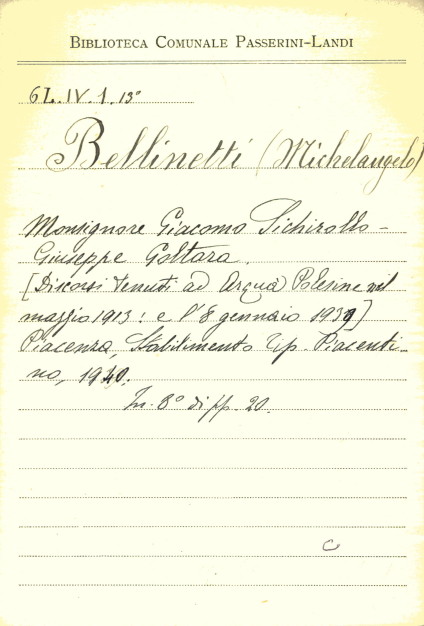 BIBLIOTECA COMUNALE PASSERINI-LANDI
6L.IV.1.13°
Bellinetti (Michelangelo)
Monsignore Giacomo Sichirollo -
Giuseppe Goltara.
[Discorsi tenuti ad Arquà Polesine nel
maggio 1913: e l'8 gennaio 1939]
Piacenza, Stabilimento Tip. Piacenti-
no, 1940.
In. 8° di pp. 20.
C